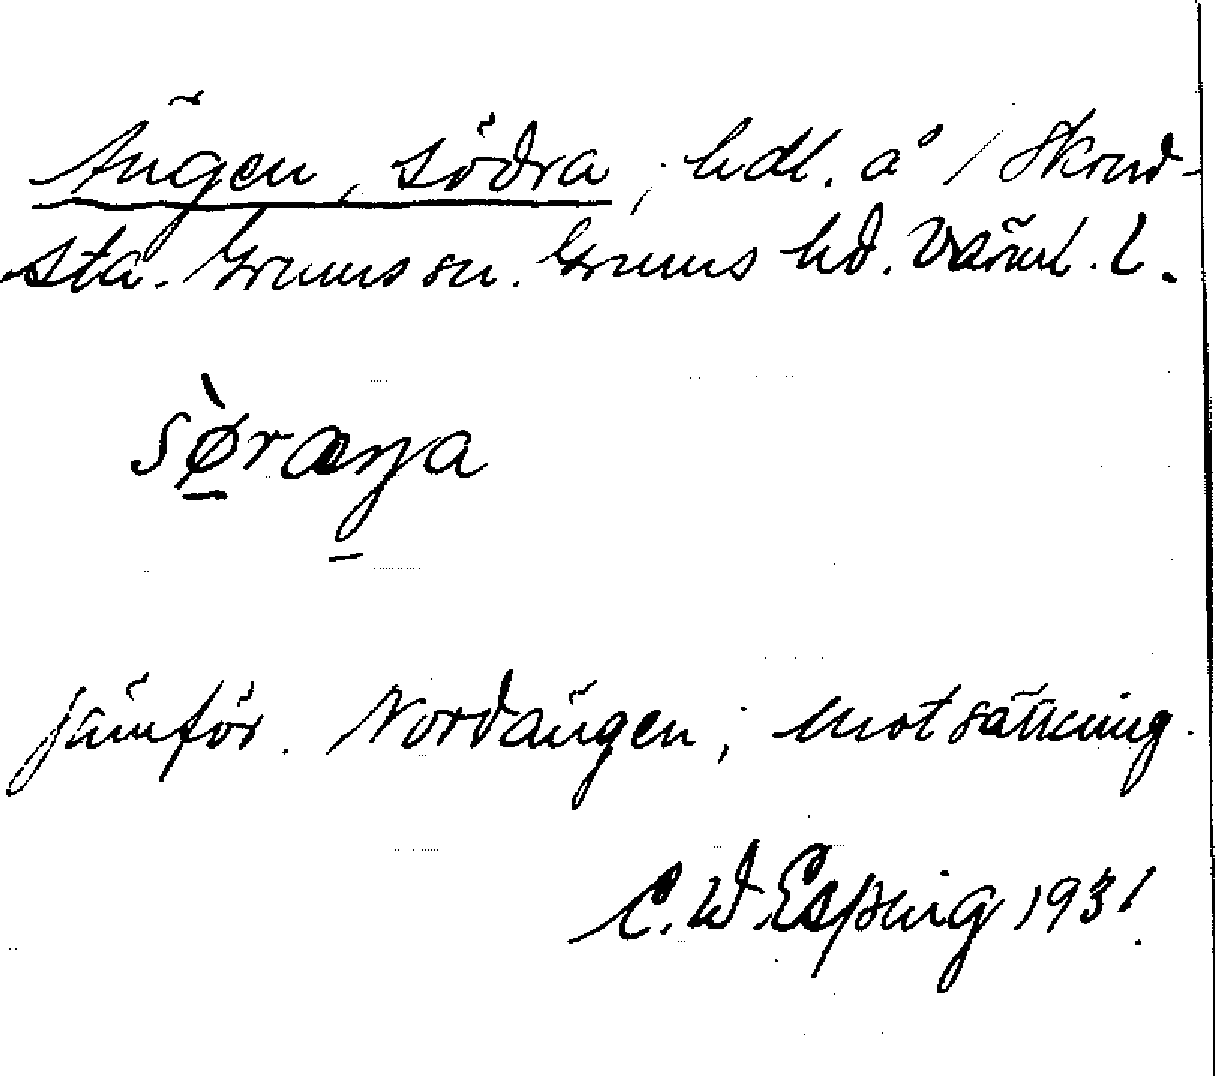 Ängen, södra; hdl. å / Skruv-
sta. Grums sn. Grums hd. Värml. l.
sø̀ræŋa
jämför. Nordängen; motsättning.
C. W. Esping 1931.